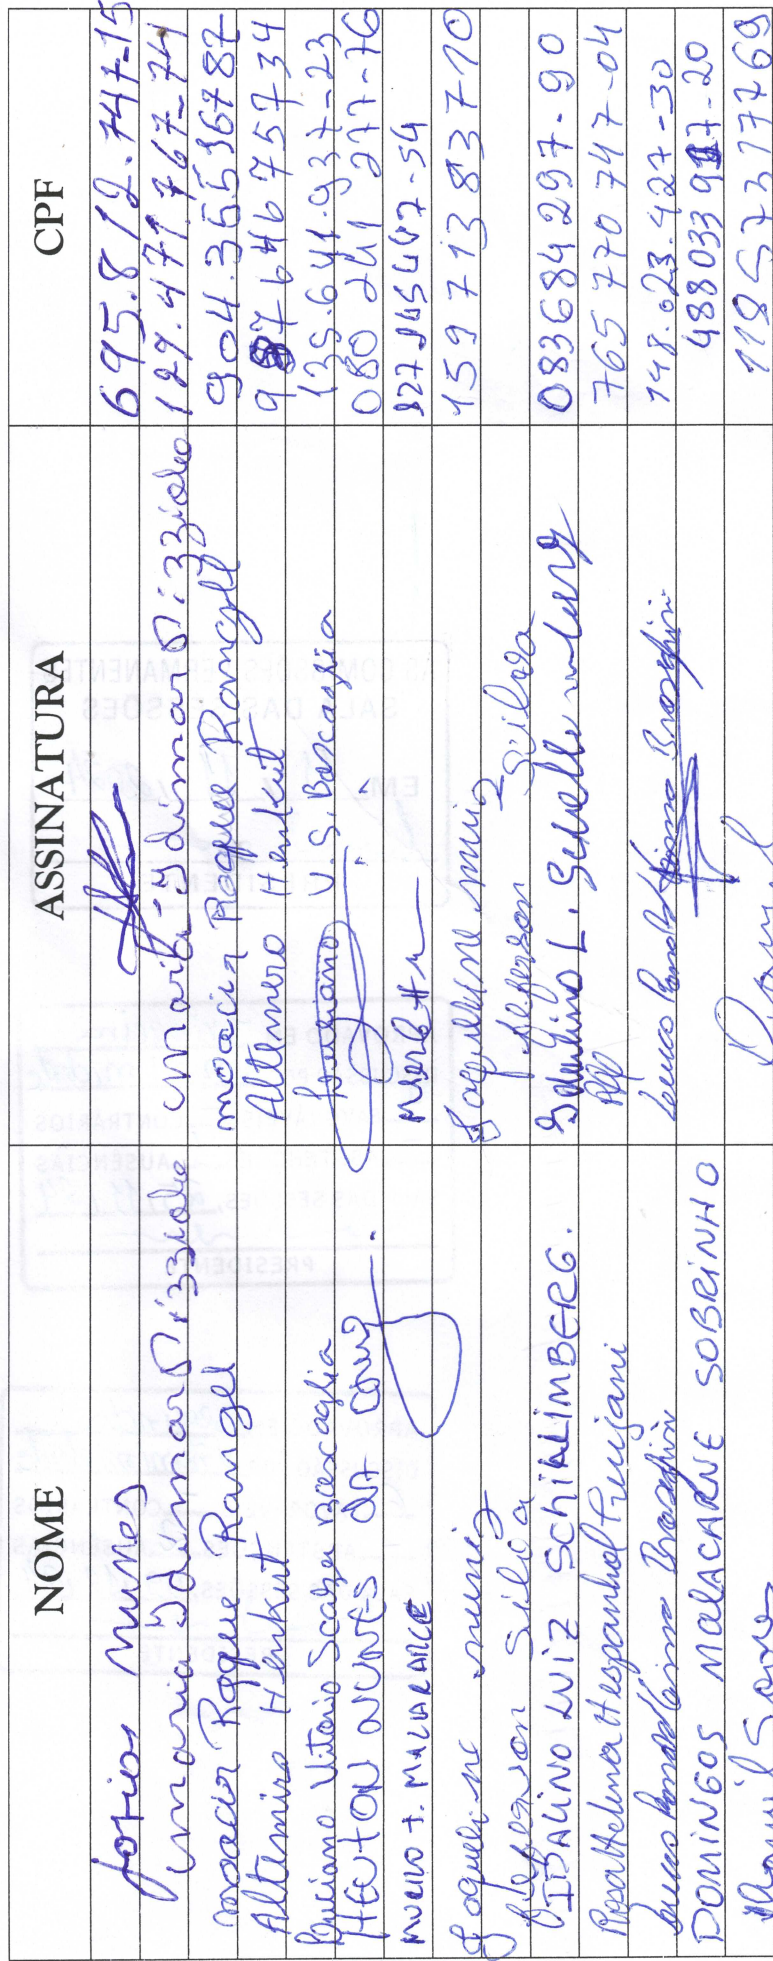 NOME ASSINATURA CPF
Josias Nunes 695.812.747-15
Maria Idimar Pizziolo Maria Idimar Pizziolo 129.471.767-74
Moacir Roque Rangel Moacir Roque Rangel 904.355.967 87
Altemiro Henkert Altemiro Henkert 987646757 34
Luciano Vitorio Scarpa Bascaglia Luciano V.S. Bascaglia 135.641.937-23
HEITON NUNES DA 080 241 277-76
MURILO J. MALACARNE 827 145447-54
Jaqueline Muniz Jaqueline Muniz 159 713 837 10
Jeferson Silva Jeferson Silva
IDALINO LUIZ SCHIALIMBERG. Idalino L. 083684 297-90
Rosa Helena Hespanhol 765 770 747-04
148.023.427-30
DOMINGOS MALACARNE SOBRINHO 488033 917-20
11857317769